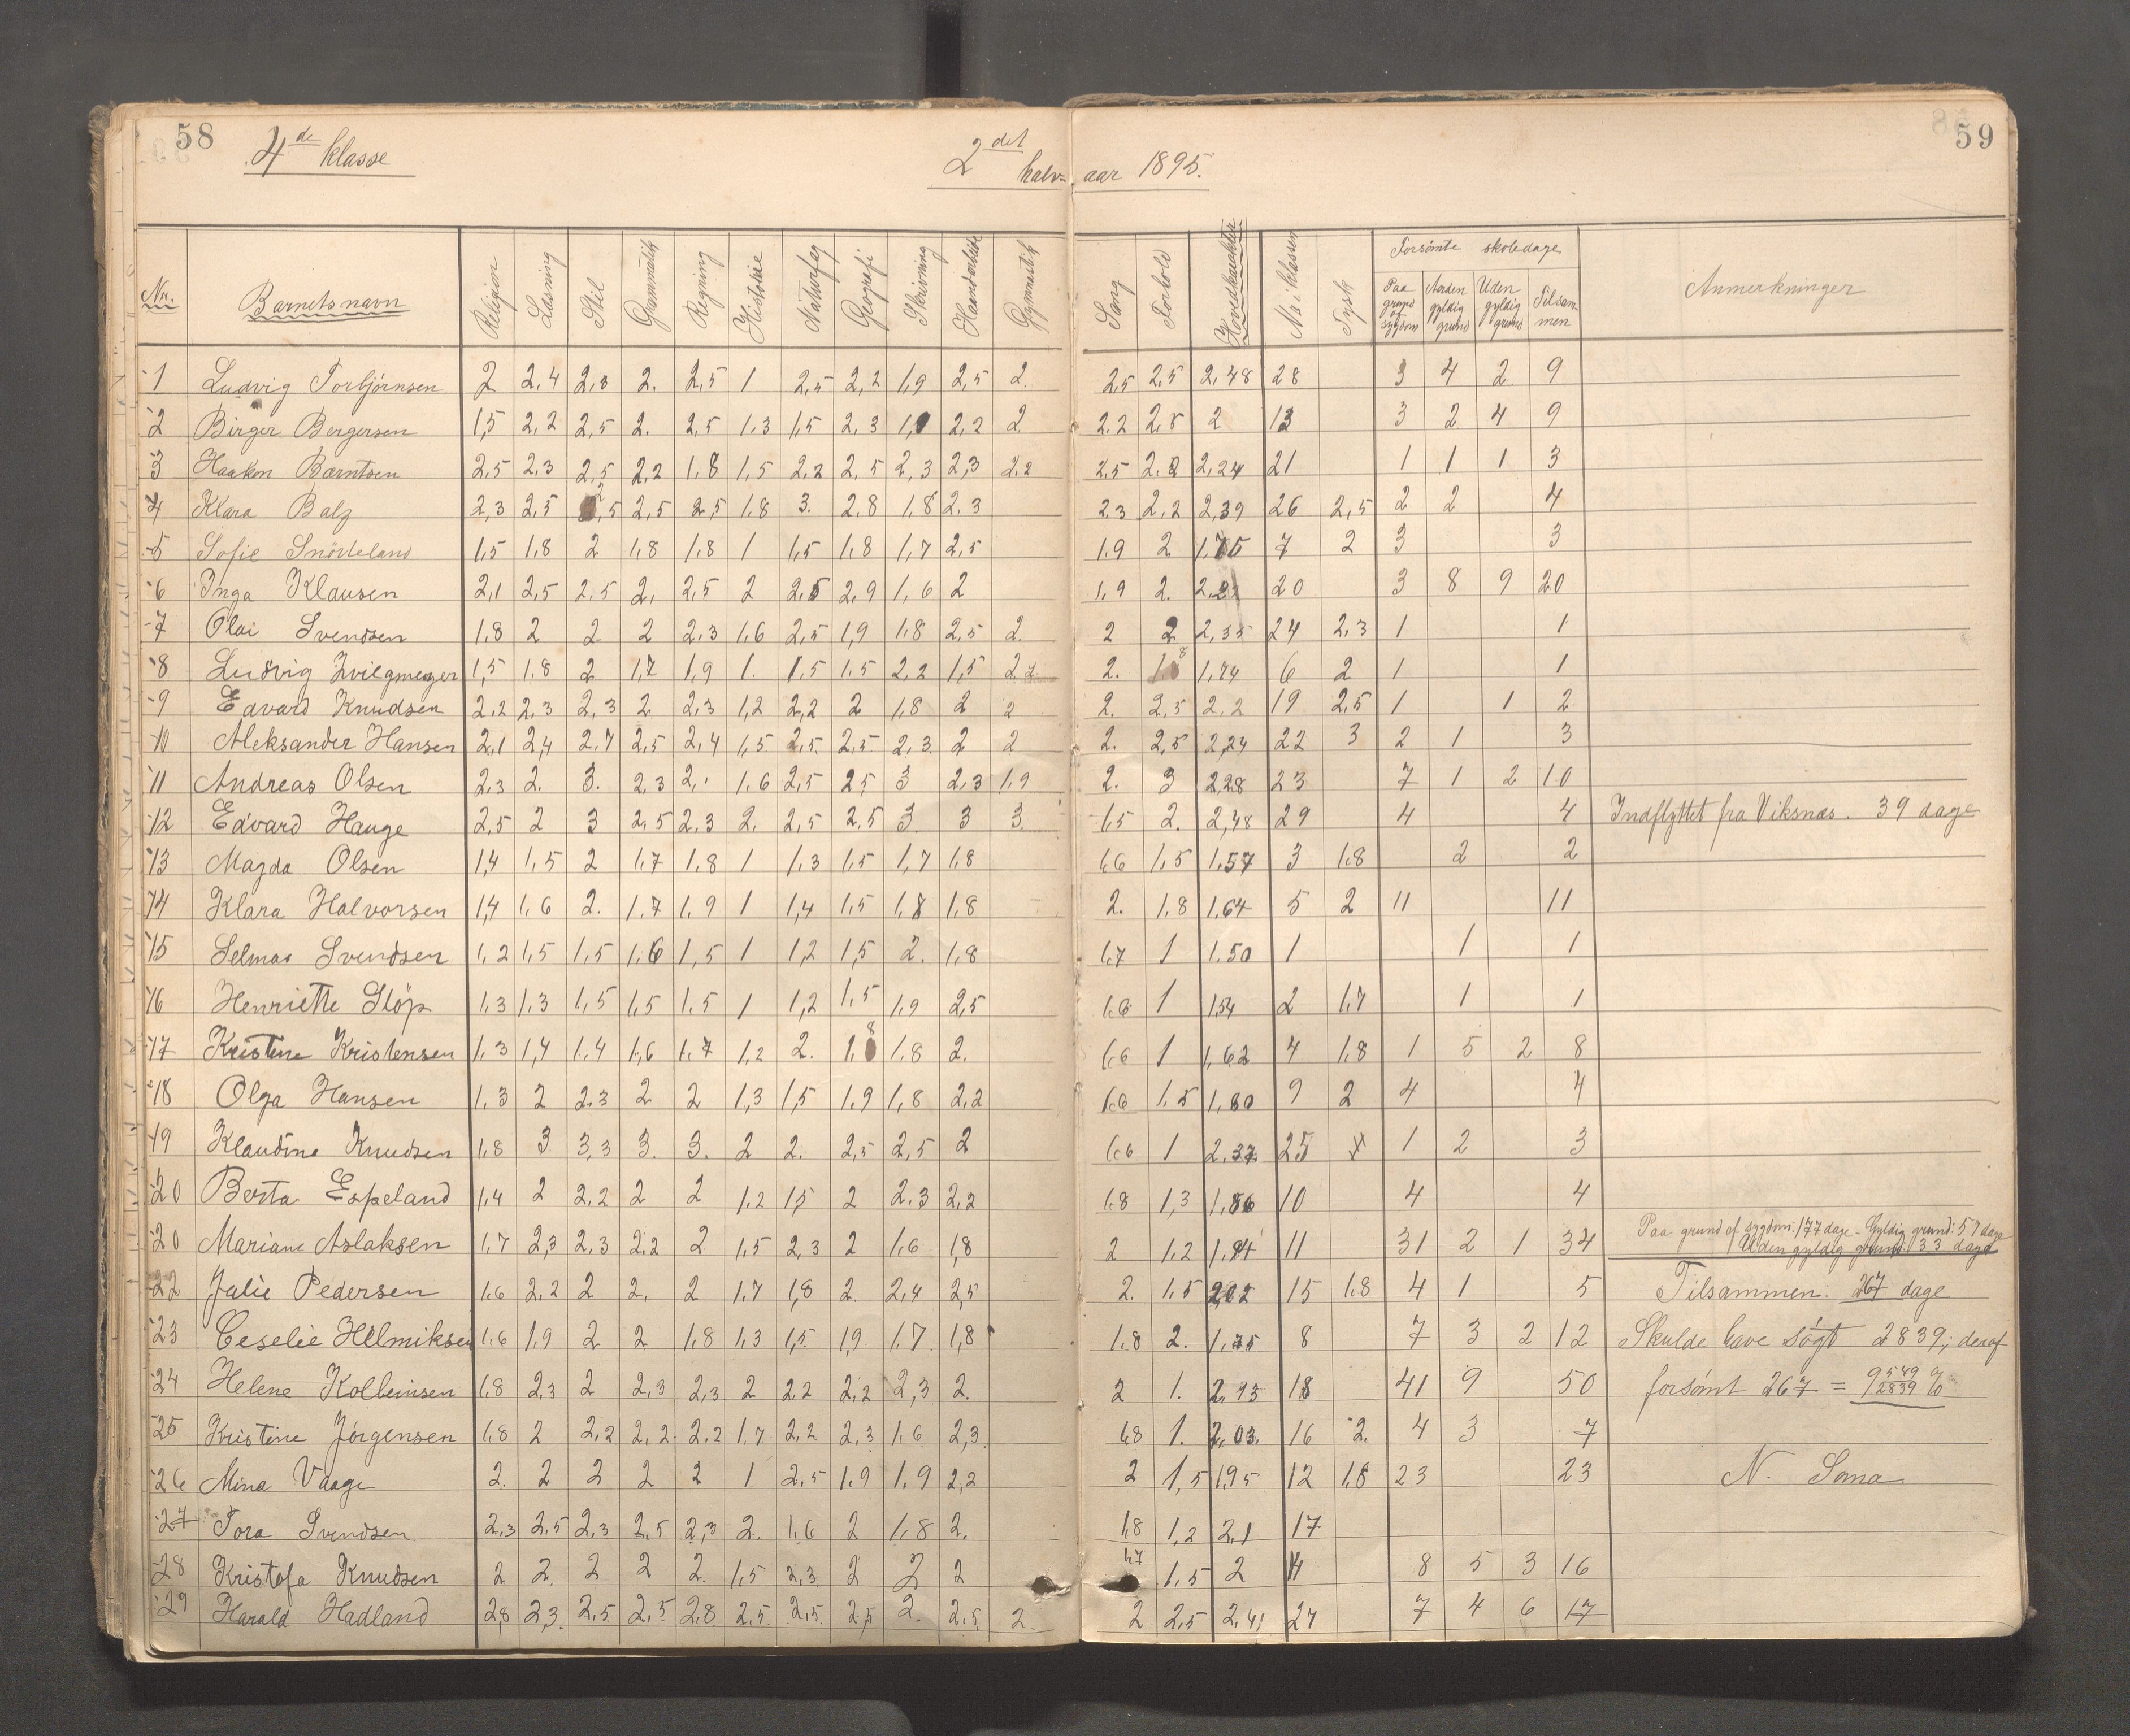 58
59
4de klasse
2det halv- aar 1895.
Nr. Barnets navn Religion Læsning Stil Grammatik Regning Historie Naturfag Geografi Skrivning Haandarbeide Gymnastik Sang Forhold Hovedkarakter No i klassen Tysk Forsømte skoledage Anmerkninger
Paa grund af sygdom Anden gyldig grund Uden gyldig grund Tilsammen
1 Ludvig Torbjörnsen 2 2,4 2,3 2. 2,5 1 2,5 2,2 1,9 2,5 2. 2,5 2,5 2,48 28 3 4 2 9
2 Birger Bergersen 1,5 2,2 2,5 2. 2,5 1,3 1,5 2,3 1,9 2,2 2 2,2 2,5 2 13 3 2 4 9
3 Haakon Bærntsen 2,5 2,3 2,5 2,2 1,8 1,5 2,2 2,5 2,3 2,3 2,2 2,5 2,2 2,24 21 1 1 1 3
4 Klara Balz 2,3 2,5 2,5 2,5 2,5 1,8 3. 2,8 1,8 2,3 2,3 2,2 2,39 26 2,5 2 2 4
5 Sofie Snörteland 1,5 1,8 2 1,8 1,8 1 1,5 1,8 1,7 2,5 1,9 2 1,75 7 2 3 3
6 Inga Klausen 2,1 2,5 2,5 2, 2,5 2 2,5 2,9 1,6 2 1,9 2. 2,23 20 3 8 9 20
7 Olai Svendsen 1,8 2 2 2 2,3 1,6 2,5 1,9 1,8 2,5 2. 2 2 2,35 24 2,3 1 1
8 Ludvig Zvilgmeyer 1,5 1,8 2 1,7 1,9 1. 1,5 1,5 2,2 1,5 2,2 2. 1,8 1,74 6 2 1 1
9 Edvard Knudsen 2,2 2,3 2,3 2 2,3 1,2 2,2 2 1,8 2 2 2. 2,5 2,2 19 2,5 1 1 2
10 Aleksander Hansen 2,1 2,4 2,7 2,5 2,4 1,5 2,5 2,5 2,3 2 2 2. 2,5 2,24 22 3 2 1 3
11 Andreas Olsen 2,3 2. 3. 2,3 2,. 1,6 2,5 2,5 3 2,3 1,9 2. 3 2,28 23 7 1 2 10
12 Edvard Hauge 2,5 2 3 2,5 2,3 2. 2,5 2,5 3 3 3 1,5 2. 2,48 29 4 4 Indflyttet fra Viksnæs. 39 dage
13 Magda Olsen 1,4 1,5 2 1,7 1,8 1 1,3 1,5 1,7 1,8 1,6 1,5 1,57 3 1,8 2 2
14 Klara Halvorsen 1,4 1,6 2. 1,7 1,9 1 1,4 1,5 1,8 1,8 2. 1,8 1,64 5 2 11 11
15 Selma Svendsen 1,2 1,5 1,5 1,6 1,5 1 1,2 1,5 2. 1,8 1,7 1 1,50 1 1 1
16 Henriette Slöp 1,3 1,3 1,5 1,5 1,5 1 1,2 1,5 1,9 2,5 1,6 1 1,54 2 1,7 1 1
17 Kristine Kristensen 1,3 1,4 1,4 1,6 1,7 1,2 2. 1,8 1,8 2. 1,6 1 1,62 4 1,8 1 5 2 8
18 Olga Hansen 1,3 2 2,3 2 2 1,3 1,5 1,9 1,8 2,2 1,6 1,5 1,80 9 2 4 4
19 Klaudine Knudsen 1,8 3 3,3 3. 3. 2 2. 2,5 2,5 2 1,6 1 2,37 25 x 1 2 3
20 Berta Espeland 1,4 2 2,2 2 2 1,2 1,5 2 2,3 2,2 1,8 1,3 1,86 10 4 4
20 Mariane Aslaksen 1,7 2,3 2,3 2,2 2 1,5 2,3 2 1,6 1,8 2 1,2 1,94 11 31 2 1 34 Paa grund af sygdom: 177 dage - Gyldig grund: 57 dage
Uden gyldig grund: 33 dage
22 Julie Pedersen 1,6 2,2 2 2, 2 1,7 1,8 2 2,4 2,5 2. 1,5 2,02 15 1,8 4 1 5 Tilsammen: 267 dage
23 Ceselie Hilmiksen 1,6 1,9 2 2 1,8 1,3 1,5 1,9 1,7 1,8 1,8 2. 1,75 8 7 3 2 12 Skulde have søgt 2839; deraf
24 Helene Kolbeinsen 1,8 2,3 2 2,3 2,3 2 2,2 2,2 2,3 2. 2 1. 2,13 18 41 9 50 forsømt 267 = 9 1149/2839 %
25 Kristine Jørgensen 1,8 2 2,2 2,2 2,2 1,7 2,2 2,3 1,6 2,3 1,8 1. 2,03 16 2. 4 3 7
26 Mina Vaage 2. 2 2 2 2 1 2,5 1,9 1,9 2,2 2 1,5 1,95 12 1,8 23 23 N. Soma
27 Tora Svendsen 2,3 2,5 2,3 2,5 2,3 2. 1,6 2 1,8 2. 1,8 1,2 2,1 17
28 Kristofa Knudsen 2 2 2 2 2. 1,5 2,3 2 2 2 1,7 1,5 2 14 8 5 3 16
29 Harald Hadland 2,8 2,3. 2,5 2,5 2,8 2,5 2,5 2,5 2. 2,5 2 2 2,5 2,41 27 7 4 6 17